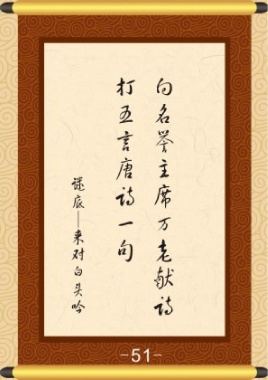 向名誉主席万老献诗
打五言唐诗一句
谜底——来对白头吟
-51-